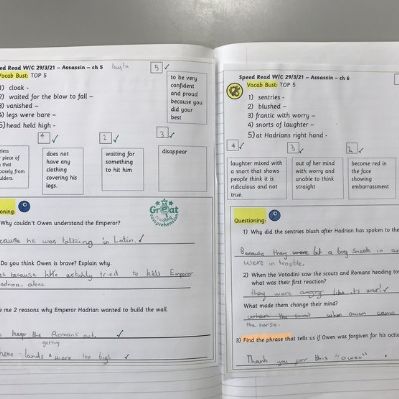 ed Read W/C 29/3/21 - Assassin - ch 5
Vocab Bust: TOP 5
1) cloak -
2) waited for the blow to fall -
3) vanished -
4) legs were bare -
5) head held high -
5
to be very
confident
and proud
because you
did your
best
4
2
3
piece of
that
loosely from
shoulders.
does not
have any
clothing
covering his
legs.
waiting for
something
to hit him
disappear
Great
oning:
Why couldn't Owen understand the Emperor?
because he was talking in Latin.
Do you think Owen is brave? Explain why.
because he actually tried to kill Emperor
me 2 reasons why Emperor Hadrian wanted to build the wall.
keep the Romans out.
getting
lands were too big
Speed Read W/C 29/3/21 - Assassin - ch 6
Vocab Bust: TOP 5
1) sentries -
2) blushed -
3) frantic with worry -
4) snorts of laughter -
5) at Hadrians right hand -
4
3
2
laughter mixed with
a snort that shows
people think it is
ridiculous and not
true.
out of her mind
with worry and
unable to think
straight
become red in
the face
showing
embarrassment
Questioning:
1) Why did the sentries blush after Hadrian has spoken to the
Because they were let a boy sneak in
were in trouble.
2) When the Votadini saw the scouts and Romans heading to
what was their first reaction?
they were angry
What made them change their mind?
when Owen came
the horse.
3) Find the phrase that tells us if Owen was forgiven for his
Thank you for this "Owen".